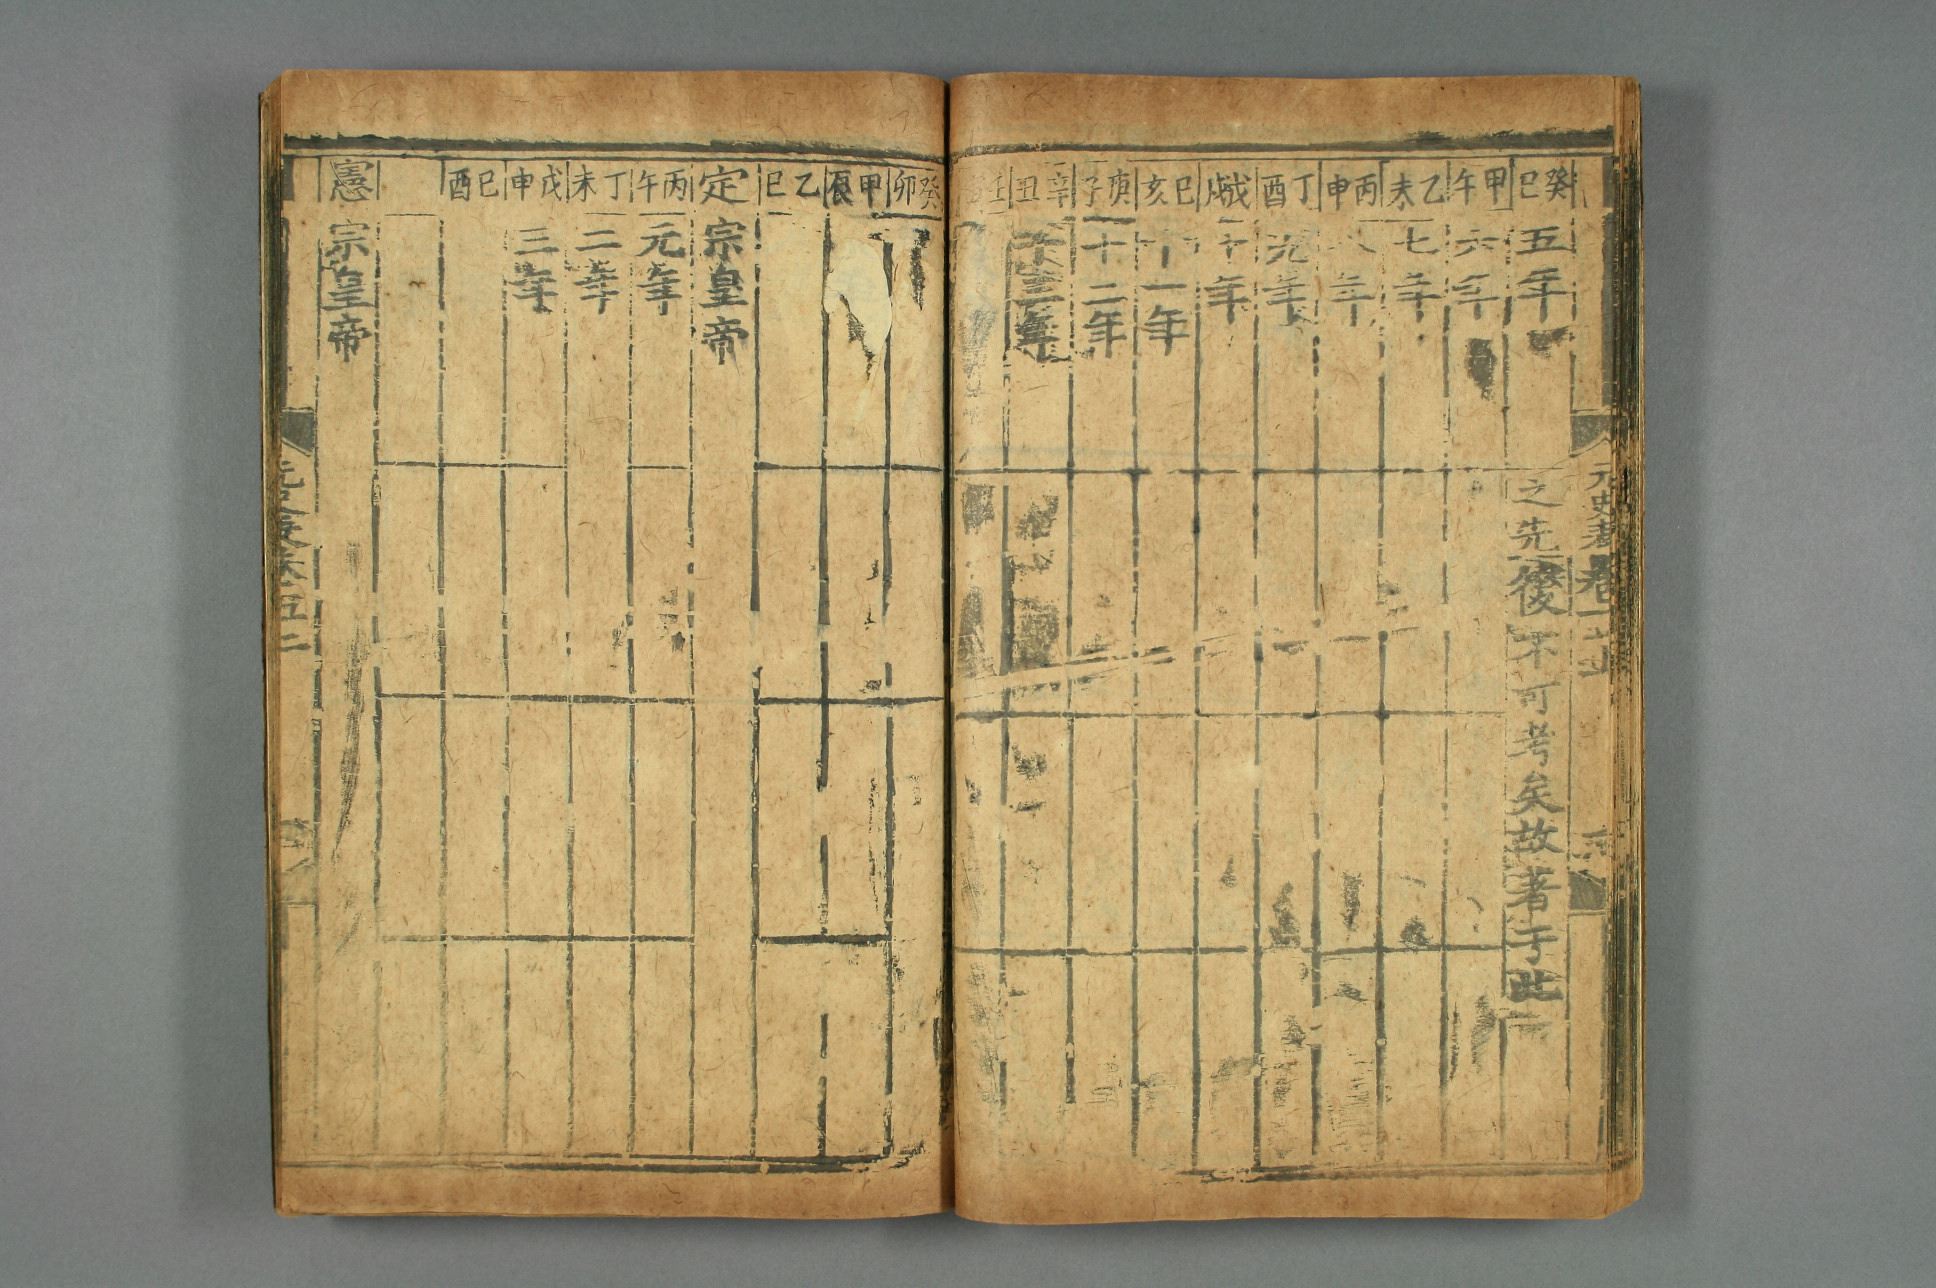 癸巳 五年 之先後不可考矣故著于此
甲午 六年
乙未 七年
丙申 八年
丁酉 九年
戊戌 十年
己亥 十一年
庚子 十二年
辛丑 十三年
壬
癸卯
甲辰
乙巳
定宗皇帝
丙午 元年
丁未 二年
戊申 三年
己酉
憲宗皇帝